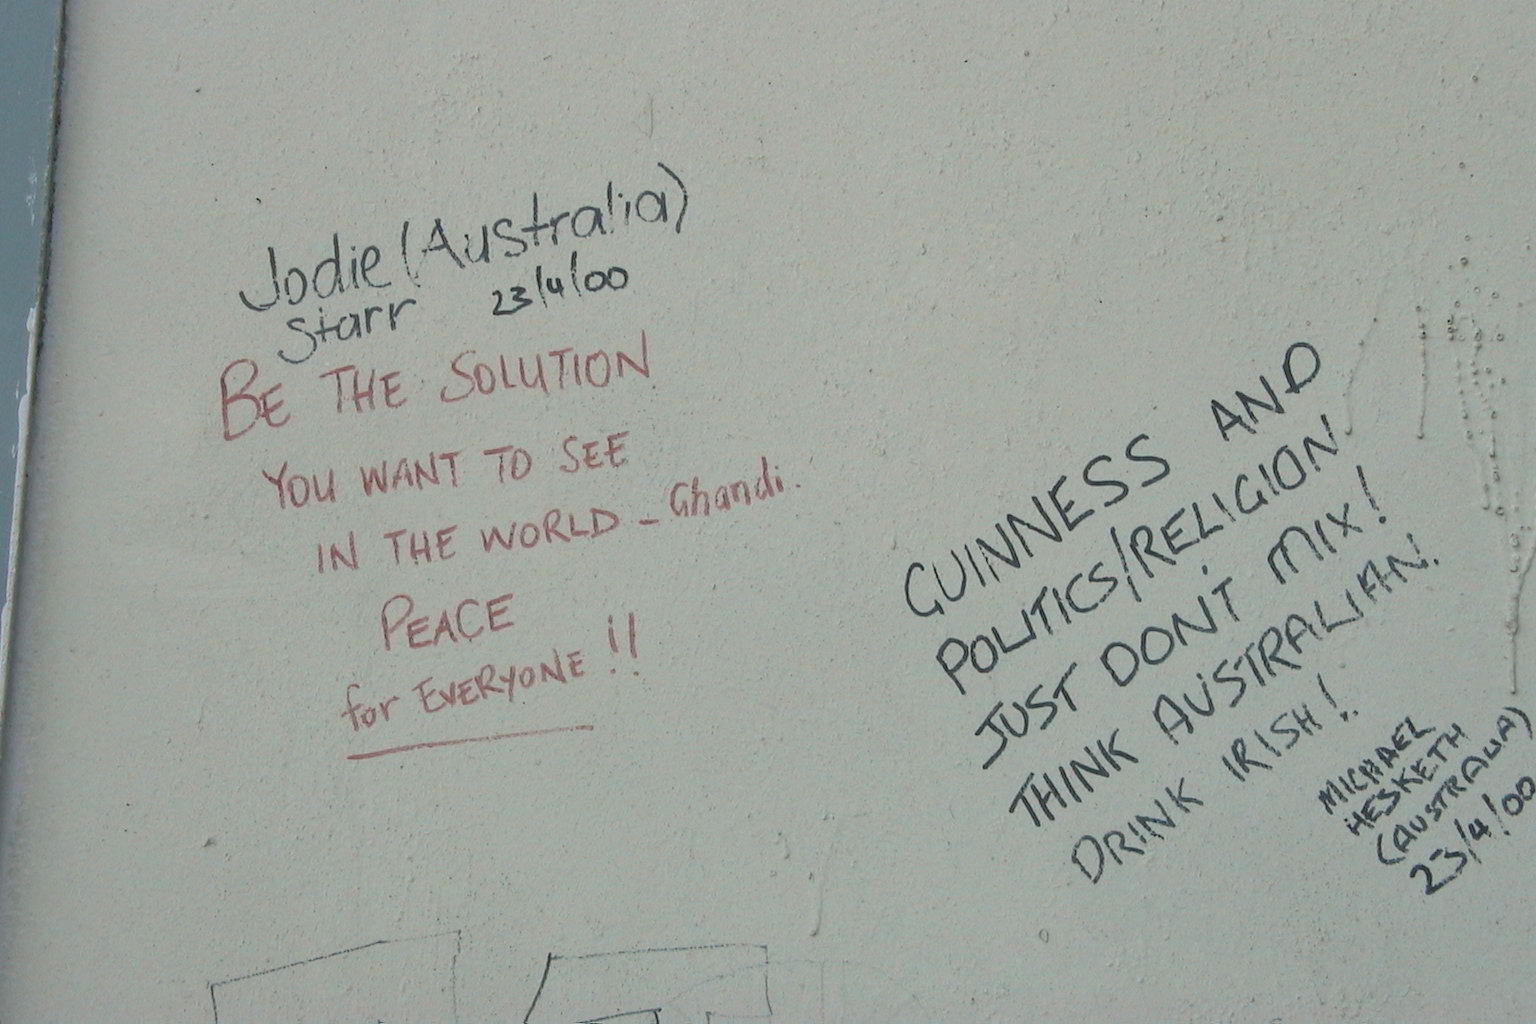 Jodie (Australia)
Starr 23/4/00
BE THE SOLUTION
YOU WANT TO SEE
IN THE WORLD - Ghandi.
PEACE
for EVERYONE !!
GUINNESS AND
POLITICS/RELIGION
JUST DON'T MIX!
THINK AUSTRALIAN.
DRINK IRISH!
MICHAEL
HESKETH
(AUSTRALIA)
23/4/00